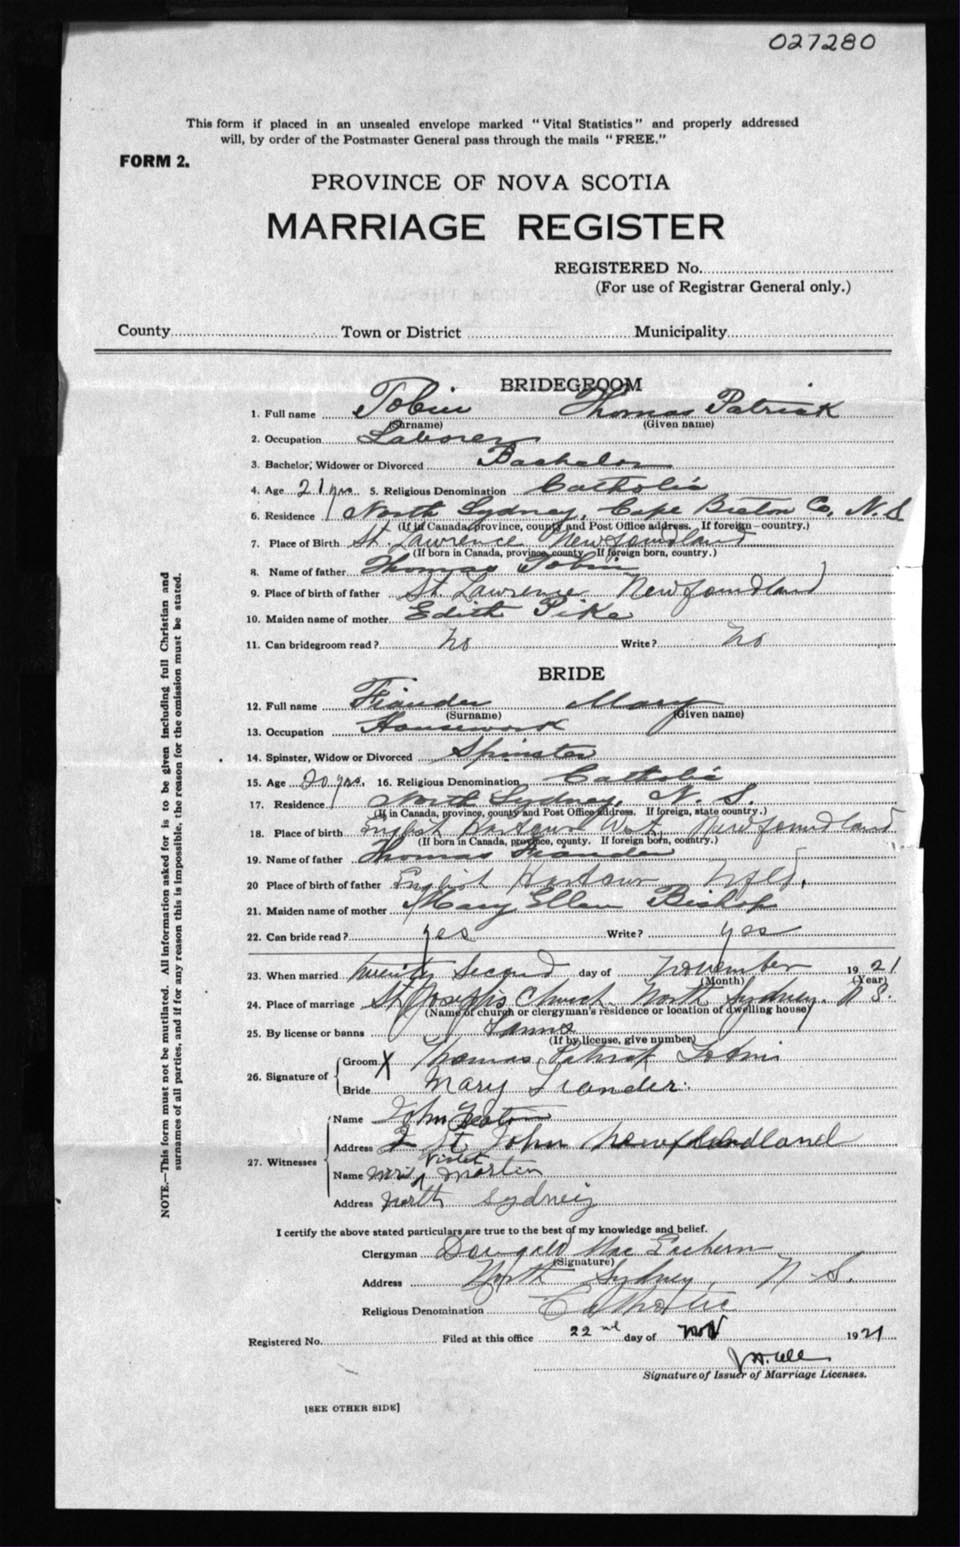 027280
This form if placed in an unsealed envelope marked "Vital Statistics" and properly addressed
will, by order of the Postmaster General pass through the mails "FREE."
FORM 2.
PROVINCE OF NOVA SCOTIA
MARRIAGE REGISTER
REGISTERED No.
(For use of Registrar General only.)
County Town or District Municipality
BRIDEGROOM
1. Full name Tobin Thomas Patrick
(Surname) (Given name)
2. Occupation Laborer
3. Bachelor, Widower or Divorced Bachelor
4. Age 21 yrs. 5. Religious Denomination Catholic
6. Residence North Sydney, Cape Breton Co, N.S
(If in Canada, province, county and Post Office address. If foreign—country.)
7. Place of Birth St. Lawrence Newfoundland
(If born in Canada, province, county. If foreign born, country.)
8. Name of father Thomas Tobin
9. Place of birth of father St. Lawrence Newfoundland
10. Maiden name of mother Edith Pike
11. Can bridegroom read? No Write? No
BRIDE
12. Full name Fiander Mary
(Surname) (Given name)
13. Occupation Housework
14. Spinster, Widow or Divorced Spinster
15. Age 20 yrs. 16. Religious Denomination Catholic
17. Residence North Sydney, N. S.
(If in Canada, province, county and Post Office address. If foreign, state country.)
18. Place of birth English Harbour West, Newfoundland
(If born in Canada, province, county. If foreign born, country.)
19. Name of father Thomas Fiander
20 Place of birth of father English Harbour Nfld.
21. Maiden name of mother Mary Ellen Bishop
22. Can bride read? yes Write? yes
23. When married twenty second day of November 1921
(Month) (Year)
24. Place of marriage St. Joseph's Church North Sydney. N S.
(Name of church or clergyman's residence or location of dwelling house)
25. By license or banns Banns
(If by license, give number)
26. Signature of Groom X Thomas Patrick Tobin
Bride Mary Fiander.
27. Witnesses Name John
Address St John Newfoundland
Name Mrs Violet Morten
Address North Sydney
I certify the above stated particulars are true to the best of my knowledge and belief.
Clergyman Dougald MacEachern
(Signature)
Address North Sydney, N S.
Religious Denomination Catholic
Registered No. Filed at this office 22nd day of Nov 1921
Signature of Issuer of Marriage Licenses.
[SEE OTHER SIDE]
NOTE.—This form must not be mutilated. All informations asked for is to be given including full Christian and
surnames of all parties, and if for any reason this is impossible, the reason for the omission must be stated.